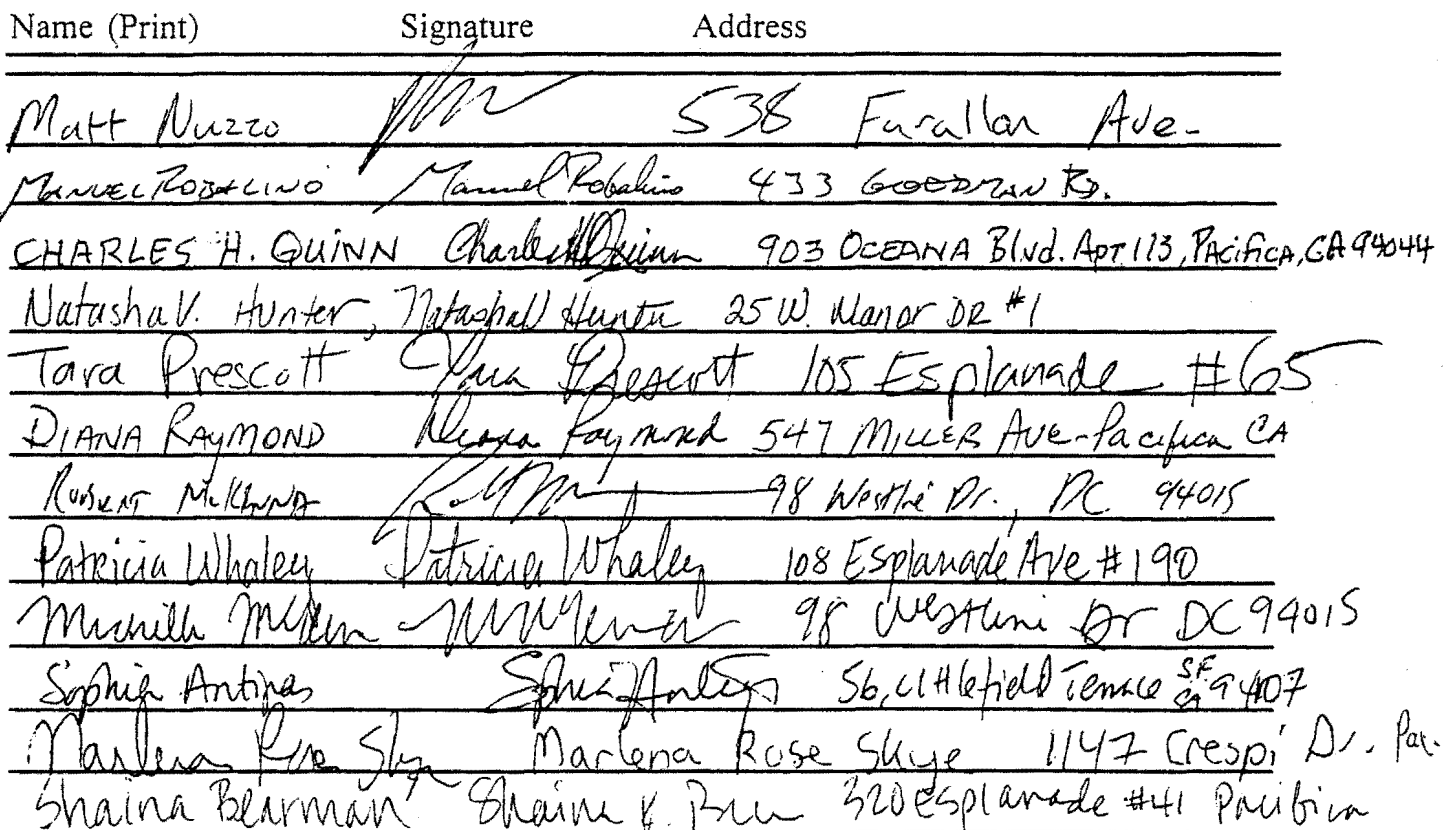 Name (Print) Signature Address
Matt Nuzzo 538 Farallon Ave.
MANUEL ROBALINO Manuel Robalino 433 GOODMAN RD.
CHARLES H. QUINN Charles H Quinn 903 OCEANA Blvd. Apt. 113, PACIFICA, CA 94044
Natasha V. Hunter, Natasha V Hunter 25 W. Manor DR #1
Tara Prescott Tara Prescott 105 Esplanade #65
DIANA RAYMOND Diana Raymond 547 MILLER AVE-Pacifica CA
ROBERT McKENNA 98 Westline Dr., DC 94015
Patricia Whaley Patricia Whaley 108 Esplanade Ave #190
98 Westline Dr DC 94015
Sophia Antipas 56, Littlefield Terrace SF CA 94107
Marlena Rose Skye Marlena Rose Skye 1147 Crespi Dr. Pac.
Shaina Bearman Shaina K. 320 esplanade #41 Pacifica